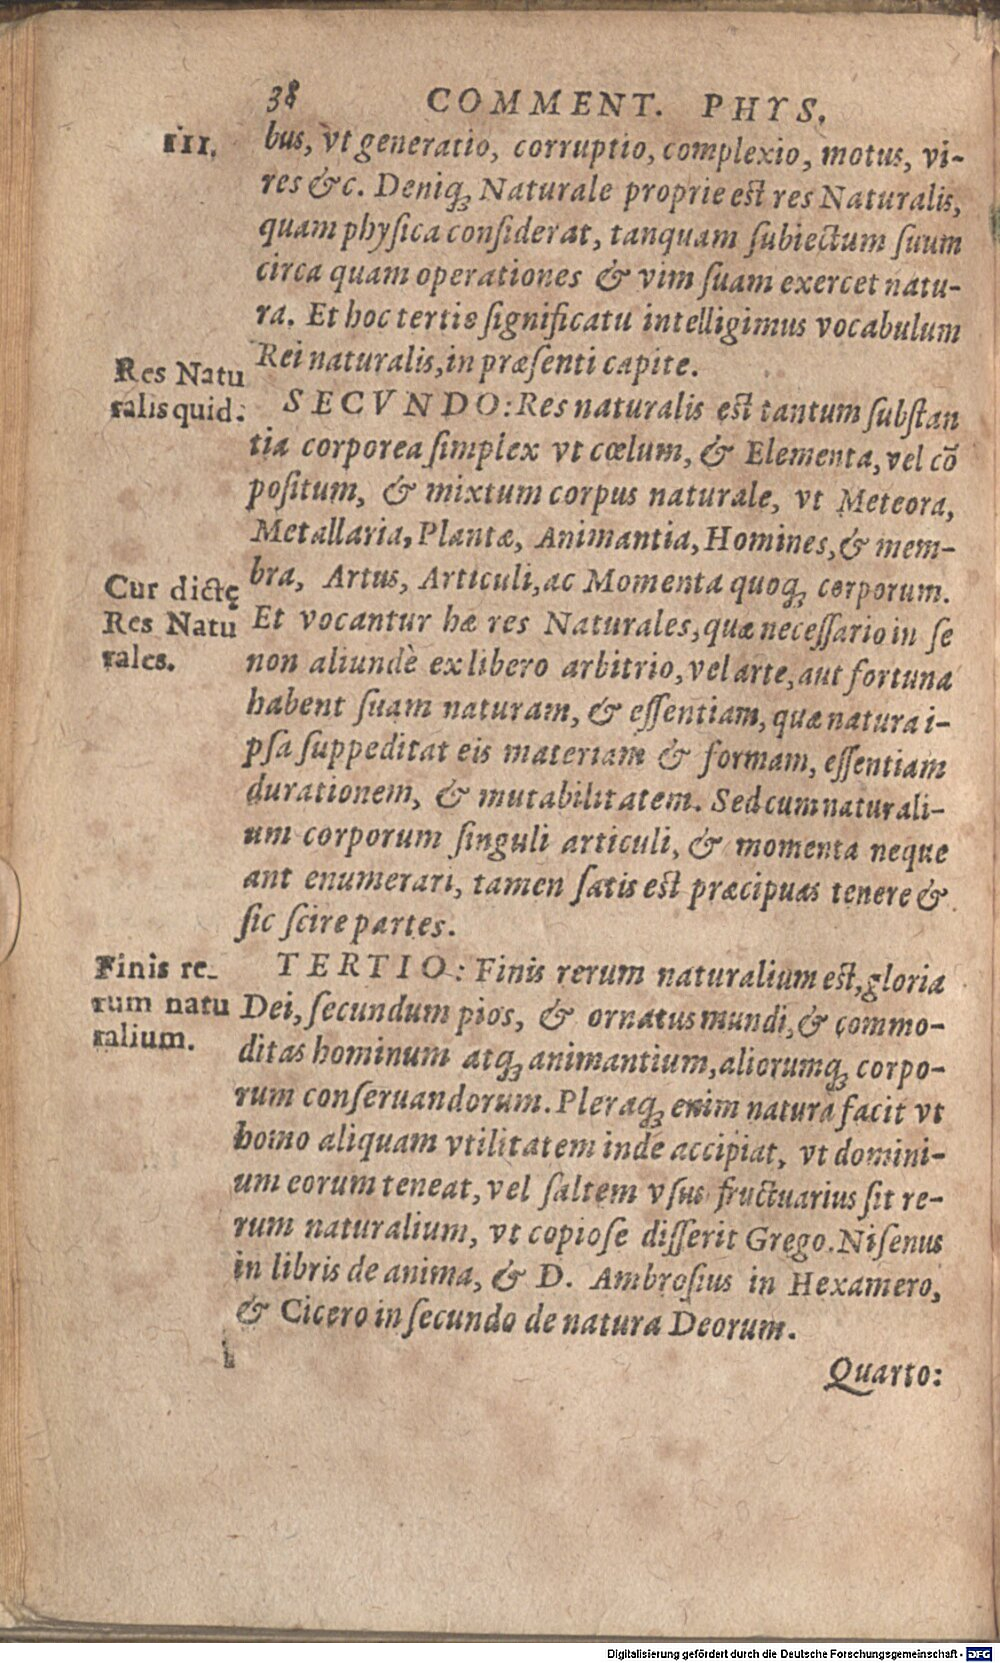 38 COMMENT. PHYS.
III.
bus, vt generatio, corruptio, complexio, motus, vi-
res &c. Deniq́; Naturale proprie est res Naturalis,
quam physica considerat, tanquam subiectum suum
circa quam operationes & vim suam exercet natu-
ra. Et hoc tertio significatu intelligimus vocabulum
Rei naturalis, in præsenti capite.
Res Natu
ralis quid.
SECVNDO: Res naturalis est tantum substan
tia corporea simplex vt cœlum, & Elementa, vel cō
positum, & mixtum corpus naturale, vt Meteora,
Metallaria, Plantæ, Animantia, Homines, & mem-
bra, Artus, Articuli, ac Momenta quoq; corporum.
Cur dictę
Res Natu
rales.
Et vocantur hæ res Naturales, quæ necessario in se
non aliundè ex libero arbitrio, vel arte, aut fortuna
habent suam naturam, & essentiam, quæ natura i-
psa suppeditat eis materiam & formam, essentiam
durationem, & mutabilitatem. Sed cum naturali-
um corporum singuli articuli, & momenta neque
ant enumerari, tamen satis est præcipuas tenere &
sic scire partes.
Finis re-
rum natu
ralium.
TERTIO: Finis rerum naturalium est, gloria
Dei, secundum pios, & ornatus mundi, & commo-
ditas hominum atq; animantium, aliorumq; corpo-
rum conseruandorum. Pleraq; enim natura facit vt
homo aliquam vtilitatem inde accipiat, vt domini-
um eorum teneat, vel saltem vsus fructuarius sit re-
rum naturalium, vt copiose disserit Grego. Nisenus
in libris de anima, & D. Ambrosius in Hexamero,
& Cicero in secundo de natura Deorum.
Quarto:
Digitalisierung gefördert durch die Deutsche Forschungsgemeinschaft - DFG